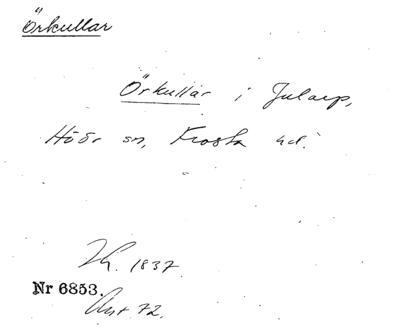 Örkullar
Örkullar i Jularp,
Höör sn, Frosta hd.
1837.
Nr 6853.
72.